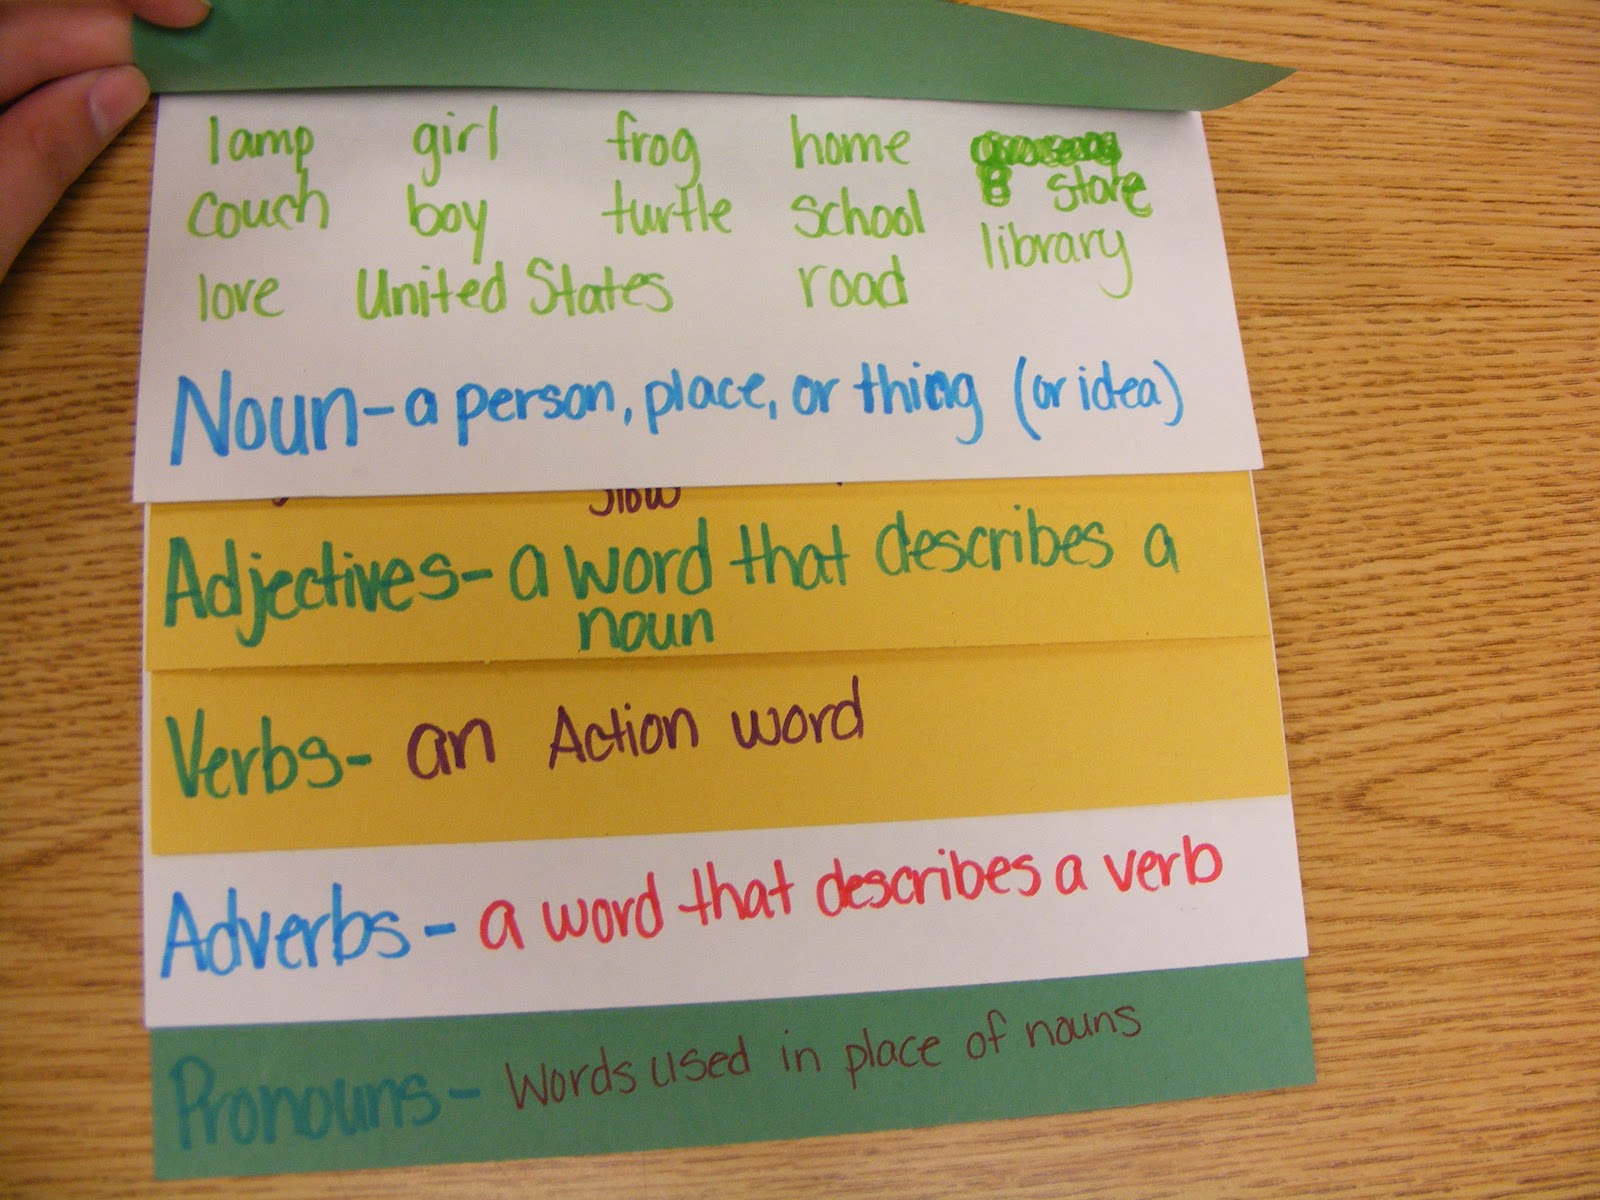 lamp girl frog home
couch boy turtle school store
love United States road library
Noun - a person, place, or thing (or idea)
slow
Adjectives - a word that describes a
noun
Verbs - an Action word
Adverbs - a word that describes a verb
Pronouns - Words used in place of nouns